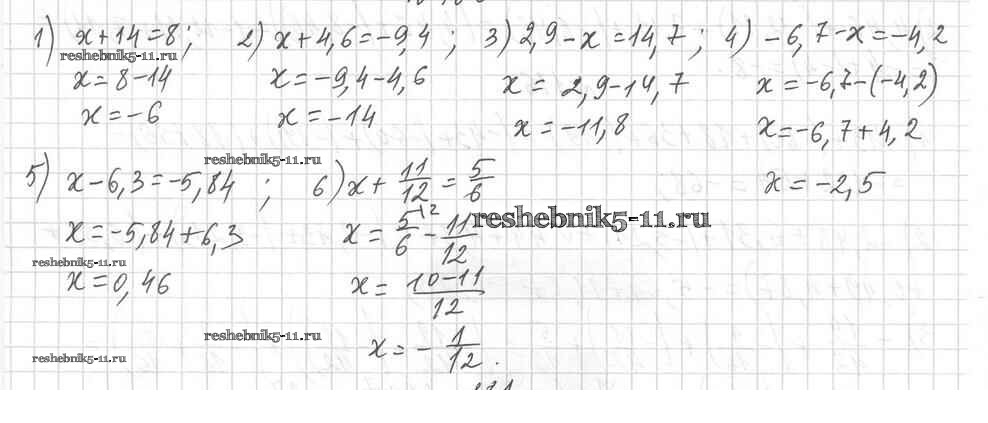 1) x+14=8; 2) x+4,6=-9,4; 3) 2,9-x=14,7; 4) -6,7-x=-4,2
reshebnik5-11.ru
x=8-14 x=-9,4-4,6 x=2,9-14,7 x=-6,7-(-4,2)
x=-6 x=-14 x=-11,8 x=-6,7+4,2
reshebnik5-11.ru
5) x-6,3=-5,84; 6) x+11/12=5/6 x=-2,5
reshebnik5-11.ru
x=-5,84+6,3 x=5/6\2-11/12
reshebnik5-11.ru
x=0,46 x=10-11/12
reshebnik5-11.ru
x=-1/12.
reshebnik5-11.ru